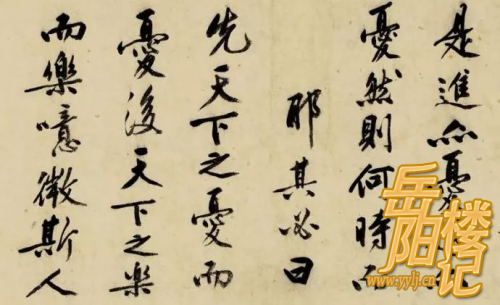 是進亦憂
憂然則何時而
耶其必曰
先天下之憂而
憂後天下之樂
而樂噫微斯人
岳阳楼记
www.yylj.cn